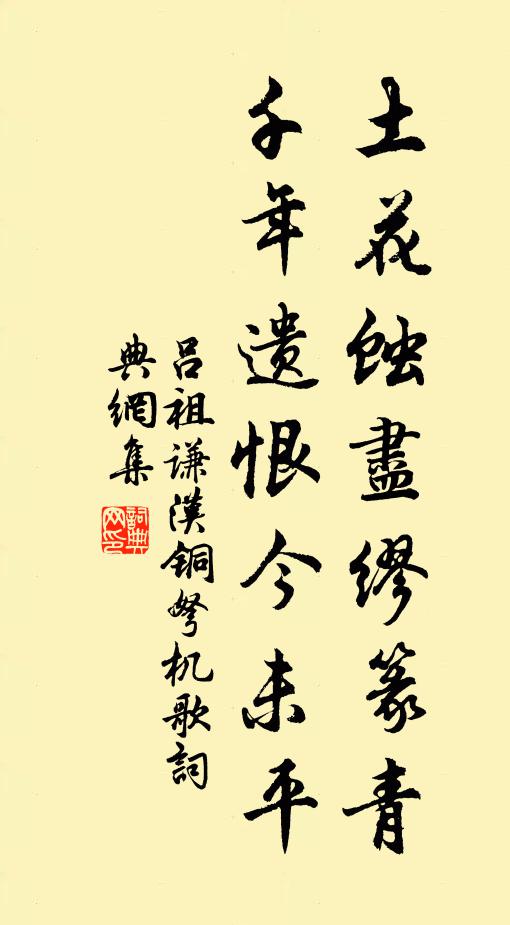 土花蝕盡繆篆青
千年遺恨今未平
吕祖谦漢铜弩机歌詞
典網集
詞典
网印